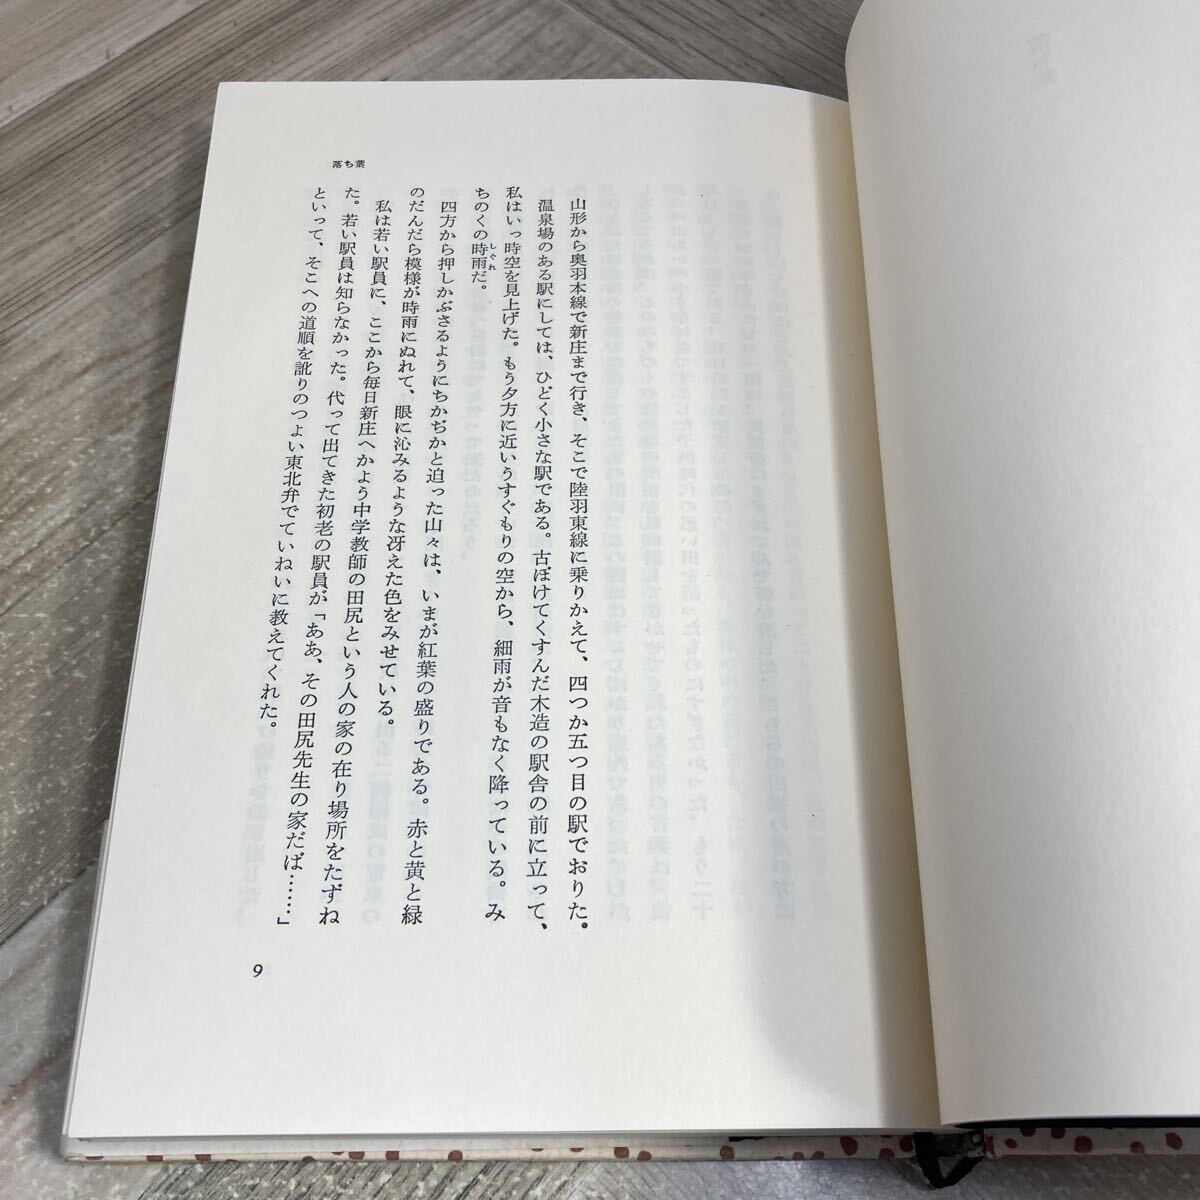 落ち葉
山形から奥羽本線で新庄まで行き、そこで陸羽東線に乗りかえて、四つか五つ目の駅でおりた。
温泉場のある駅にしては、ひどく小さな駅である。古ぼけてくすんだ木造の駅舎の前に立って、
私はいっ時空を見上げた。もう夕方に近いうすぐもりの空から、細雨が音もなく降っている。み
ちのくの時雨だ。
しぐれ
四方から押しかぶさるようにちかぢかと迫った山々は、いまが紅葉の盛りである。赤と黄と緑
のだんだら模様が時雨にぬれて、眼に沁みるような冴えた色をみせている。
私は若い駅員に、ここから毎日新庄へかよう中学教師の田尻という人の家の在り場所をたずね
た。若い駅員は知らなかった。代って出てきた初老の駅員が「ああ、その田尻先生の家だば……」
といって、そこへの道順を訛りのつよい東北弁でていねいに教えてくれた。
9